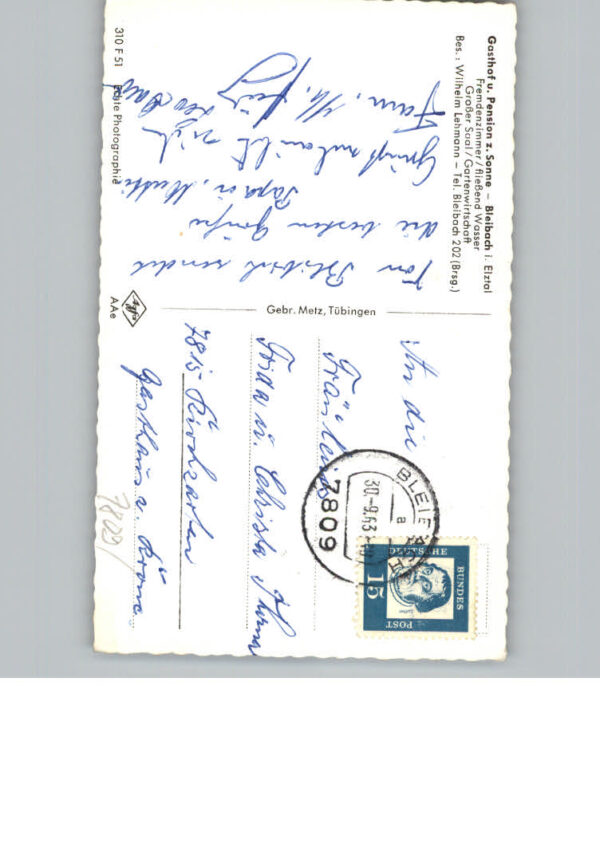 Gasthof u. Pension z. Sonne – Bleibach i. Elztal
Fremdenzimmer/fließend Wasser
Großer Saal/Gartenwirtschaft
Bes.: Wilhelm Lehmann – Tel. Bleibach 202 (Brsg.)
Von Bleibach sendet
die besten Grüße
Papa u. Mutti
Gruß
Fam.
310 F 51 Echte Photographie
Gebr. Metz, Tübingen
Agfa
AAe
An die
Fräuleins
Frida u. Christa
7815 Kirchzarten
Gasthaus z. Krone
7809
BLEIBACH
a
30.-9.63
7809
DEUTSCHE
BUNDES
POST
15
Luther